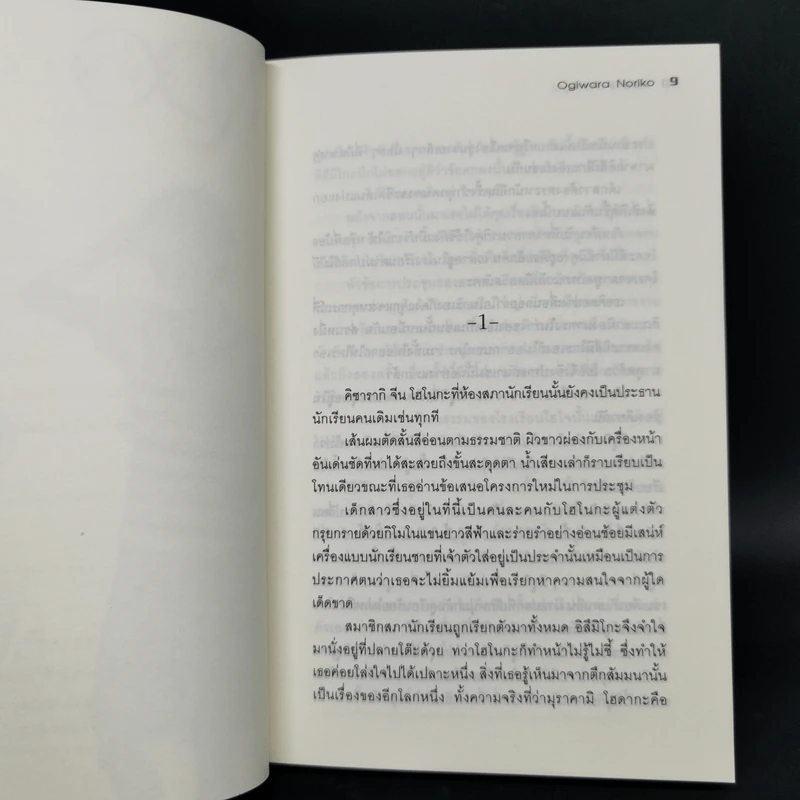 Ogiwara Noriko 9
-1-
คิซารากิ จีน โฮโนกะที่ห้องสภานักเรียนนั้นยังคงเป็นประธาน
นักเรียนคนเดิมเช่นทุกที
เส้นผมตัดสั้นสีอ่อนตามธรรมชาติ ผิวขาวผ่องกับเครื่องหน้า
อันเด่นชัดที่หาได้สะสวยถึงขั้นสะดุดตา น้ำเสียงเล่าก็ราบเรียบเป็น
โทนเดียวขณะที่เธออ่านข้อเสนอโครงการใหม่ในการประชุม
เด็กสาวซึ่งอยู่ในที่นี้เป็นคนละคนกับโฮโนกะผู้แต่งตัว
กรุยกรายด้วยกิโมโนแขนยาวสีฟ้าและร่ายรำอย่างอ่อนช้อยมีเสน่ห์
เครื่องแบบนักเรียนชายที่เจ้าตัวใส่อยู่เป็นประจำนั้นเหมือนเป็นการ
ประกาศตนว่าเธอจะไม่ยิ้มแย้มเพื่อเรียกหาความสนใจจากผู้ใด
เด็ดขาด
สมาชิกสภานักเรียนถูกเรียกตัวมาทั้งหมด อิสึมิโกะจึงจำใจ
มานั่งอยู่ที่ปลายโต๊ะด้วย ทว่าโฮโนกะก็ทำหน้าไม่รู้ไม่ชี้ ซึ่งทำให้
เธอค่อยโล่งใจไปได้เปลาะหนึ่ง สิ่งที่เธอรู้เห็นมาจากตึกสัมมนานั้น
เป็นเรื่องของอีกโลกหนึ่ง ทั้งความจริงที่ว่ามุราคามิ โฮดากะคือ